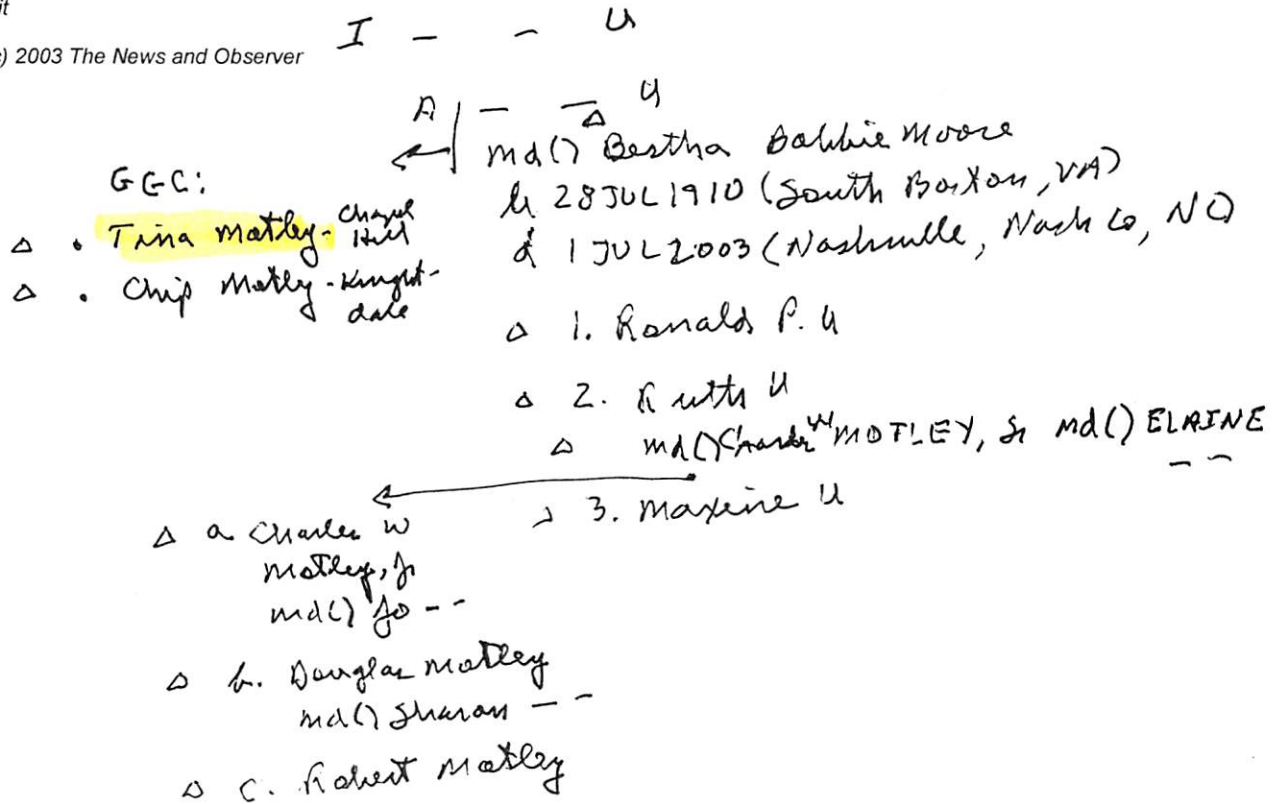 it
c) 2003 The News and Observer
I - - U
A - - U
md() Bertha Dabbie Moore
b 28 JUL 1910 (South Boston, VA)
d 1 JUL 2003 (Nashville, Nash Co, NC)
GGC:
Δ • Tina Motley - Chapel Hill
Δ • Chip Motley - Knight-
dale
Δ 1. Ronald P. U
Δ 2. Ruth U
Δ md() Charles W MOTLEY, Sr md() ELAINE
- -
3. Maxine U
Δ a. Charles W
Motley, Jr
md() Jo - -
Δ b. Douglas Motley
md() Sharon - -
Δ c. Robert Motley